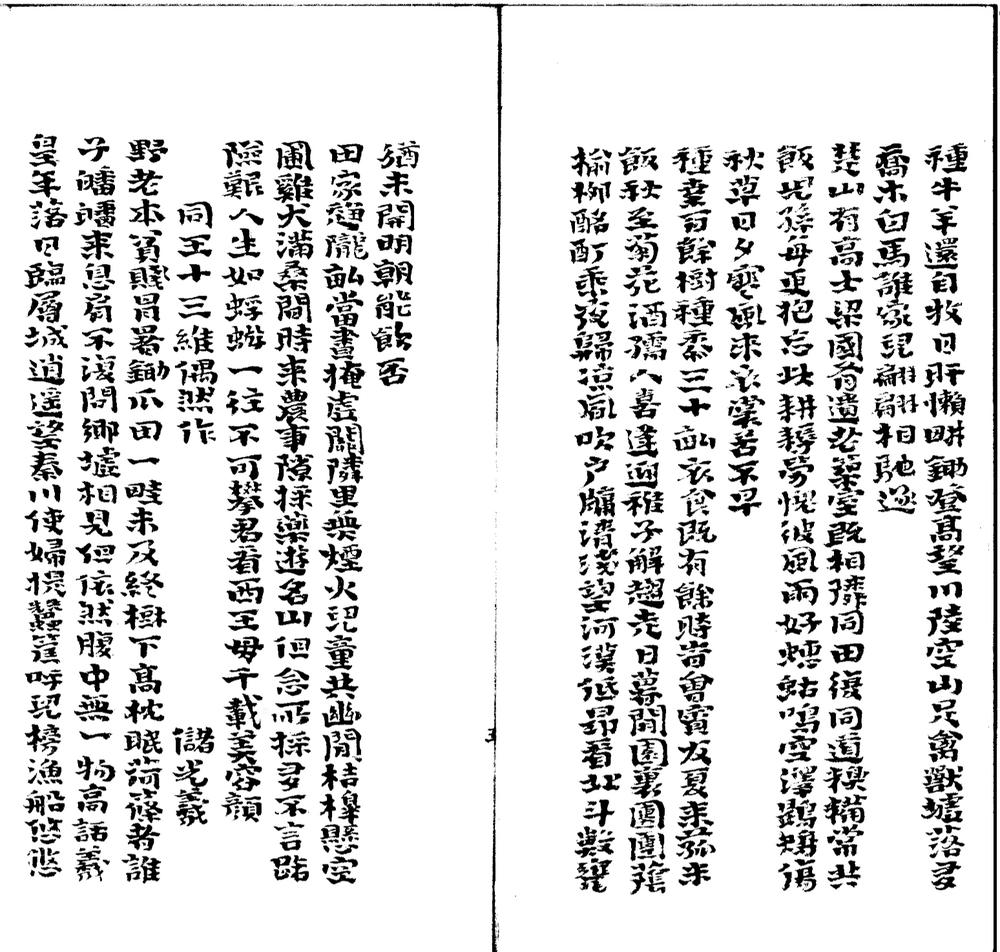 種牛羊還自牧日旰懶畊鋤登高望川陸空山足禽獸墟落多
喬木白馬誰家兒翩翩相馳逐
楚山有高士梁國有遺老築室既相隣同田復同道糗糒常共
飯兒孫每更抱忘此耕耨勞愧彼風雨好蟪蛄鳴空澤鶗鴂傷
秋草日夕寒風来衣裳苦不早
種桒百餘樹種黍三十畝衣食既有餘時旹會賓友夏来菰米
飯秋至菊花酒孺人喜逢迎稚子解趨走日暮閒園裏團團蔭
榆柳酩酊乘夜歸凉風吹户牖清淺望河漢低昂看北斗數甕
猶未開明朝能飲否
田家趍隴畝當晝掩虛關隣里無煙火兒童共幽閒桔槔懸空
圃雞犬滿桑間時来農事隙採藥遊名山但念所採多不言路
險艱人生如蜉蝣一往不可攀君看西王母千載美容顏
同王十三維偶然作 儲光羲
野老本貧賤冒暑鋤瓜田一畦未及終樹下高枕眠荷蓧者誰
子皤皤来息肩不復問鄉墟相見但依然腹中無一物高話羲
皇年落日臨層城逍遥望秦川使婦提蠶筐呼兒榜漁船悠悠